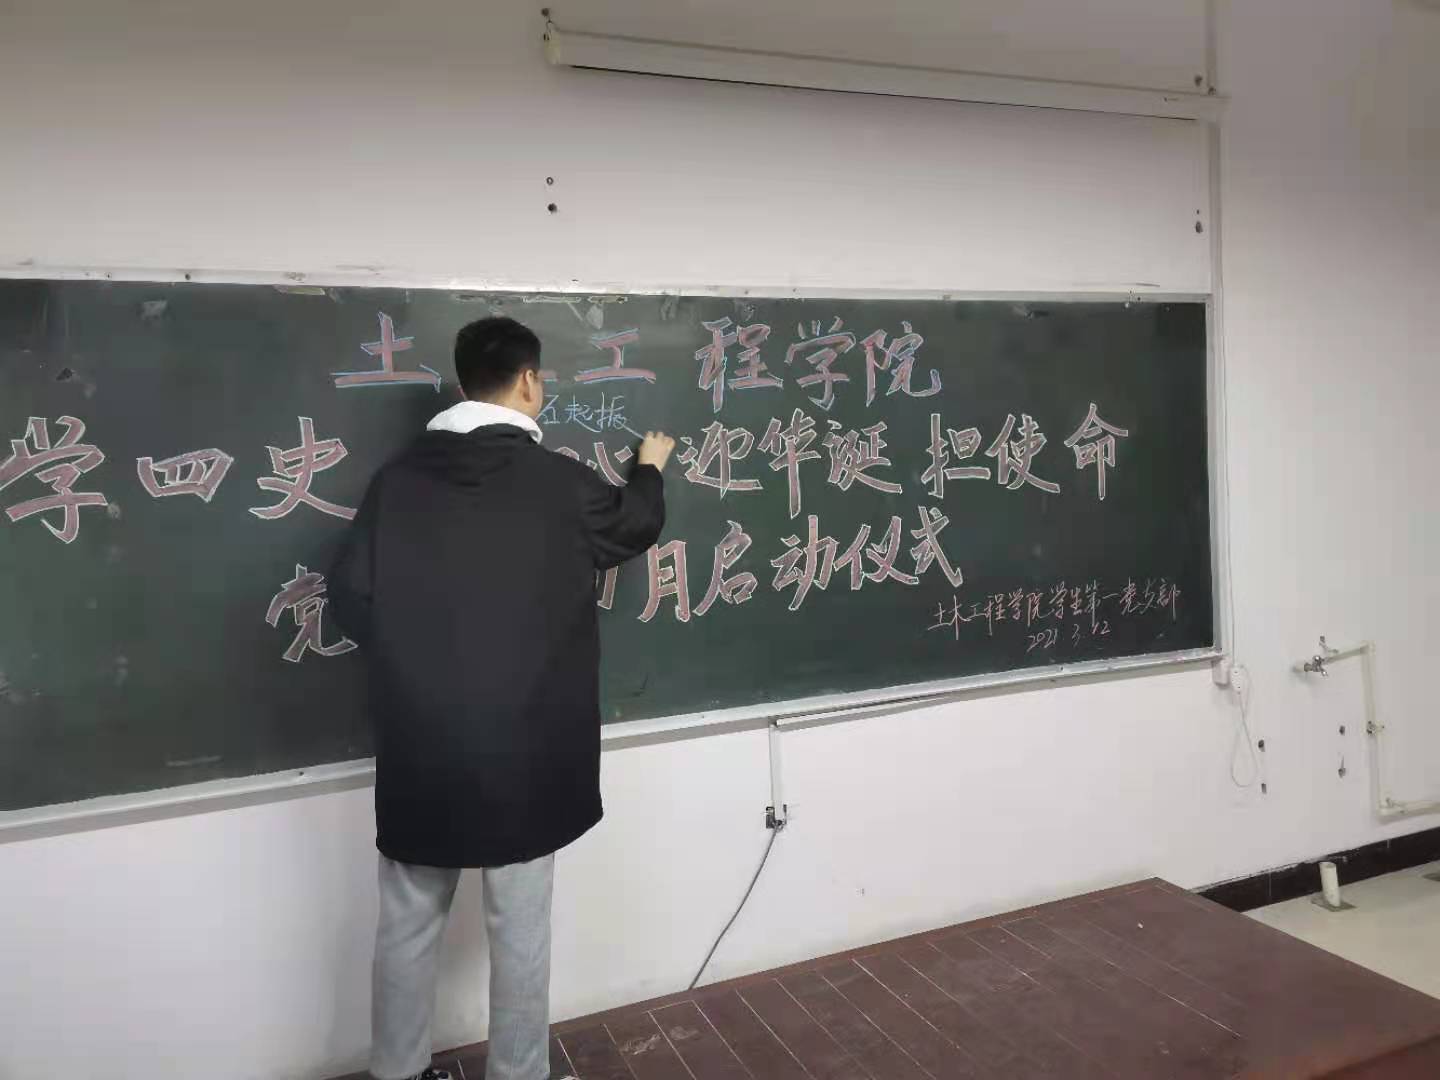 土 工程学院
起振
学四史 迎华诞 担使命
党 月启动仪式
土木工程学院学生第一党支部
2021 3 12